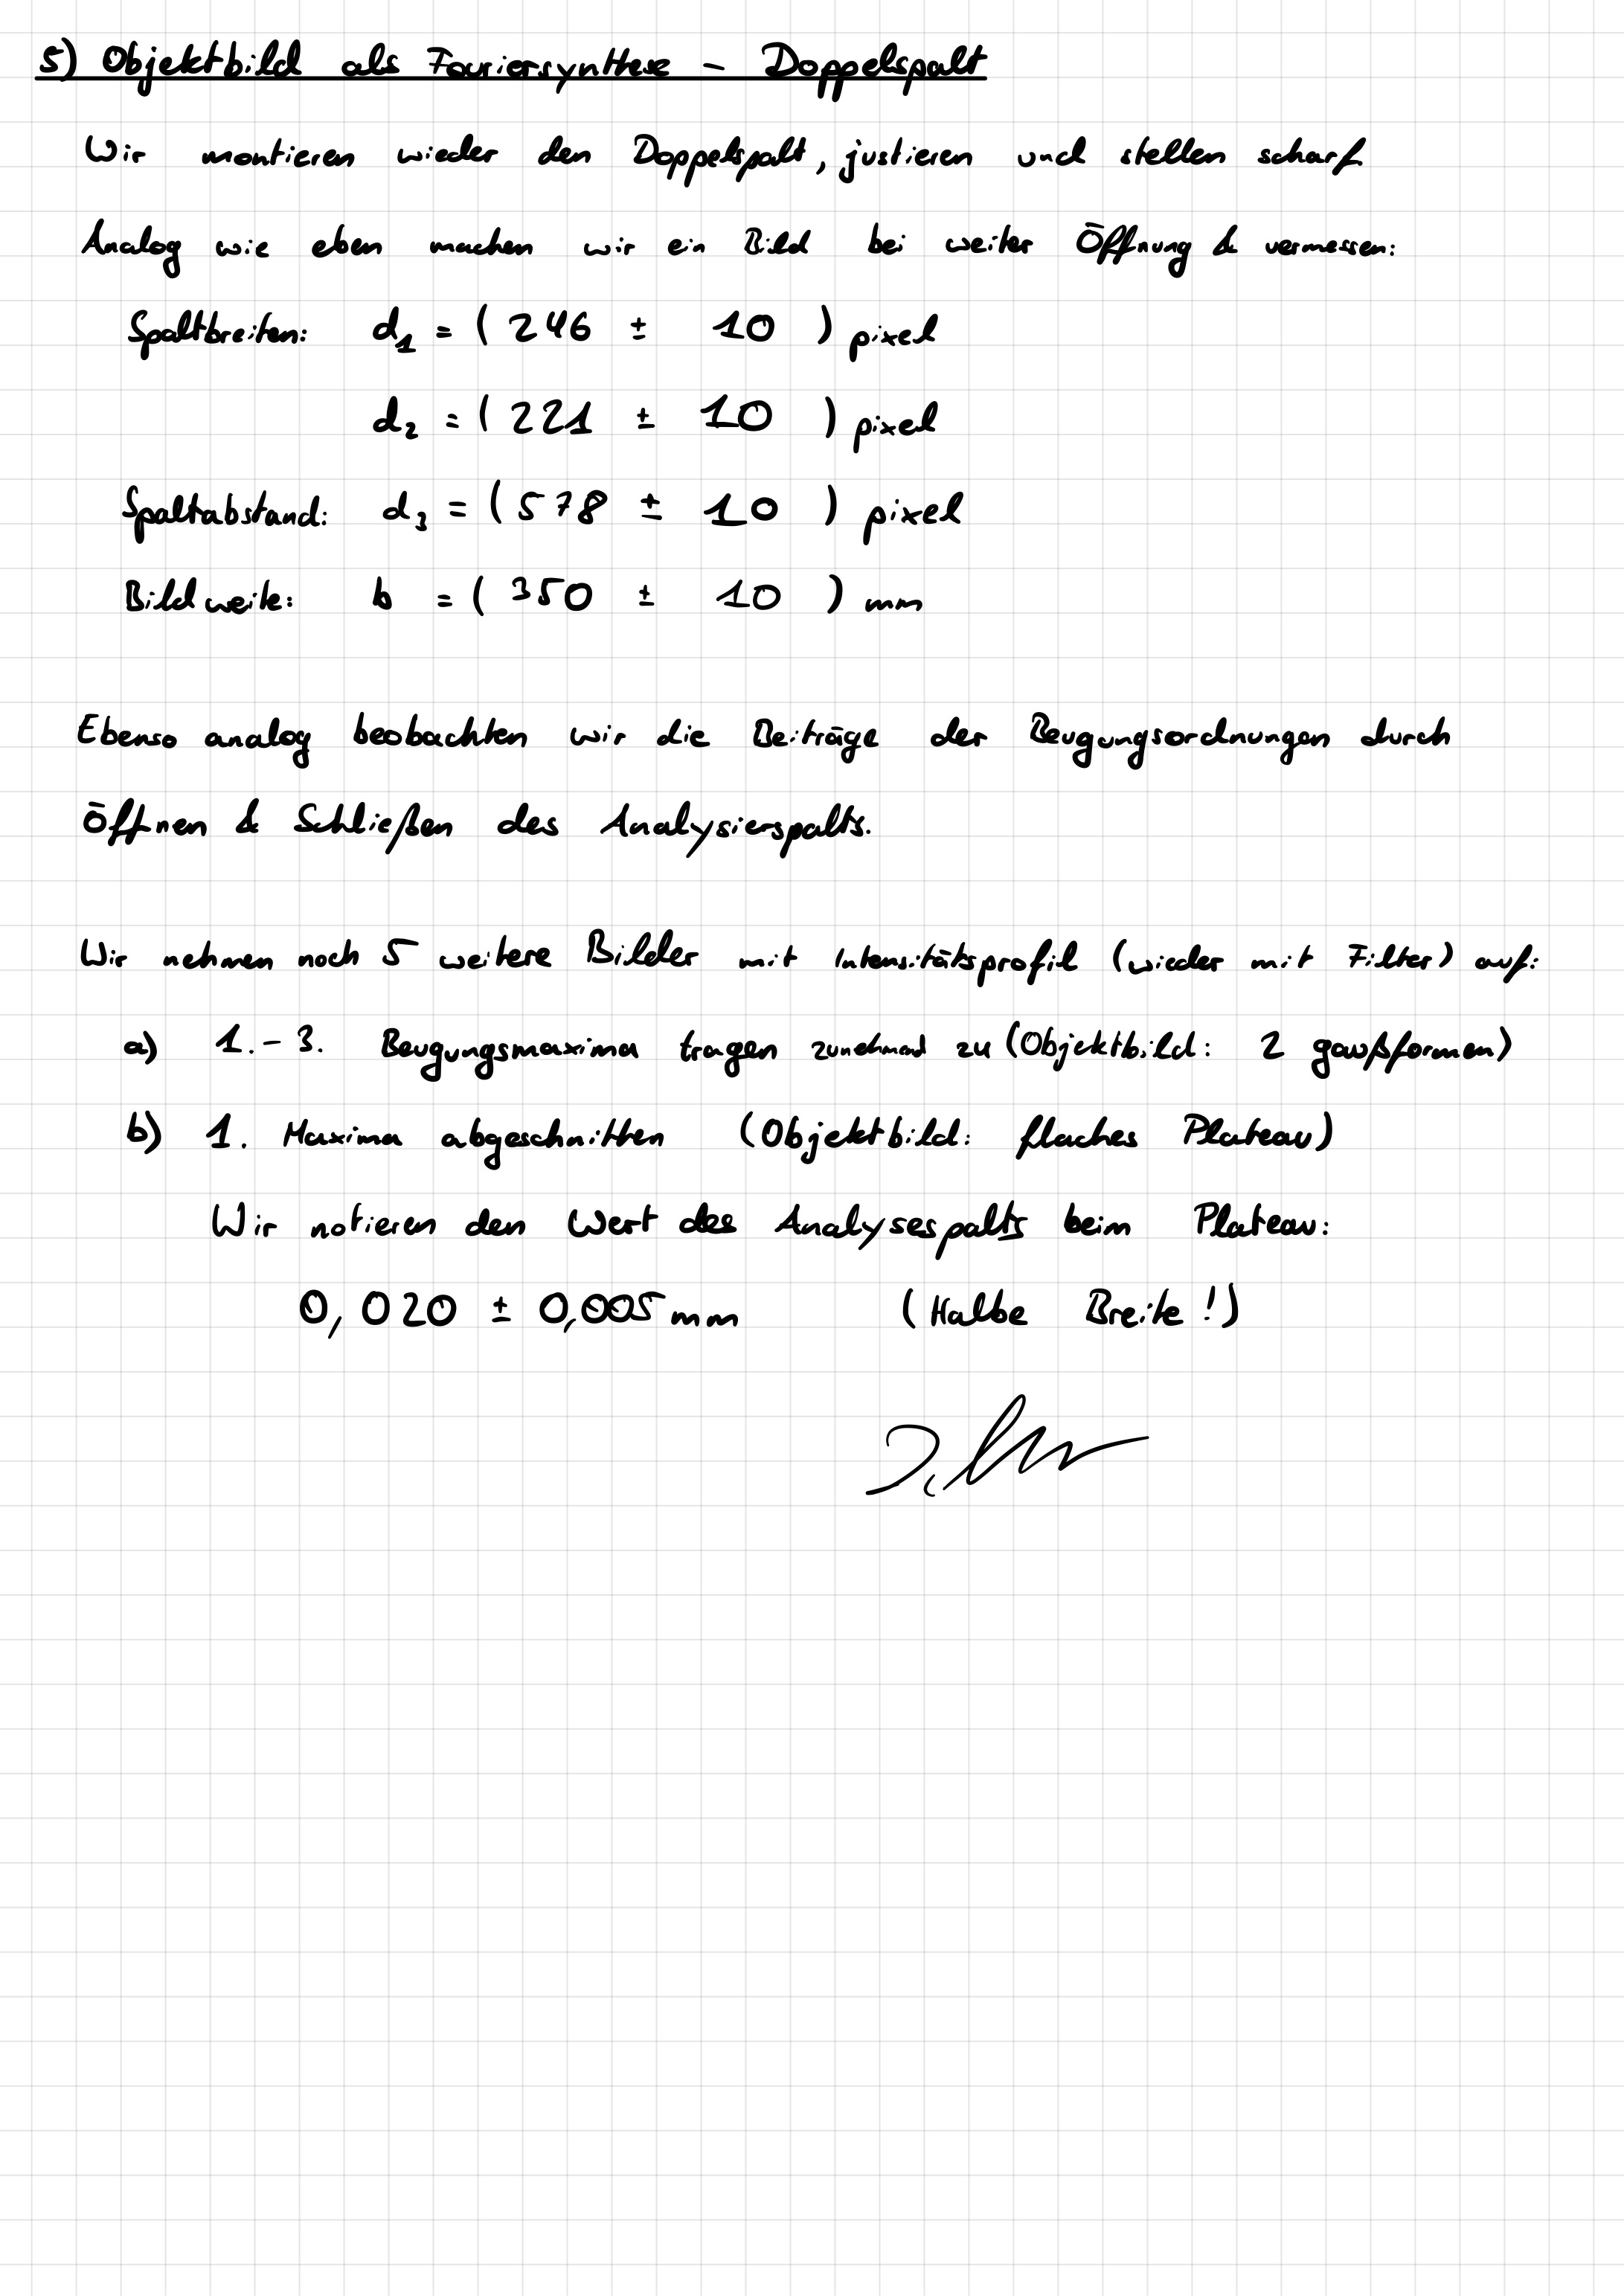 5) Objektbild als Fouriersynthese – Doppelspalt
Wir montieren wieder den Doppelspalt, justieren und stellen scharf
Analog wie eben machen wir ein Bild bei weiter Öffnung & vermessen:
Spaltbreiten: d₁ = ( 246 ± 10 ) pixel
d₂ = ( 221 ± 10 ) pixel
Spaltabstand: d₃ = ( 578 ± 10 ) pixel
Bildweite: b = ( 350 ± 10 ) mm
Ebenso analog beobachten wir die Beiträge der Beugungsordnungen durch
Öffnen & Schließen des Analysierspalts.
Wir nehmen noch 5 weitere Bilder mit Intensitätsprofil (wieder mit Filter) auf:
a) 1. – 3. Beugungsmaxima tragen zunehmend zu (Objektbild: 2 gaußformen)
b) 1. Maxima abgeschnitten (Objektbild: flaches Plateau)
Wir notieren den Wert des Analysespalts beim Plateau:
0,020 ± 0,005 mm (Halbe Breite!)